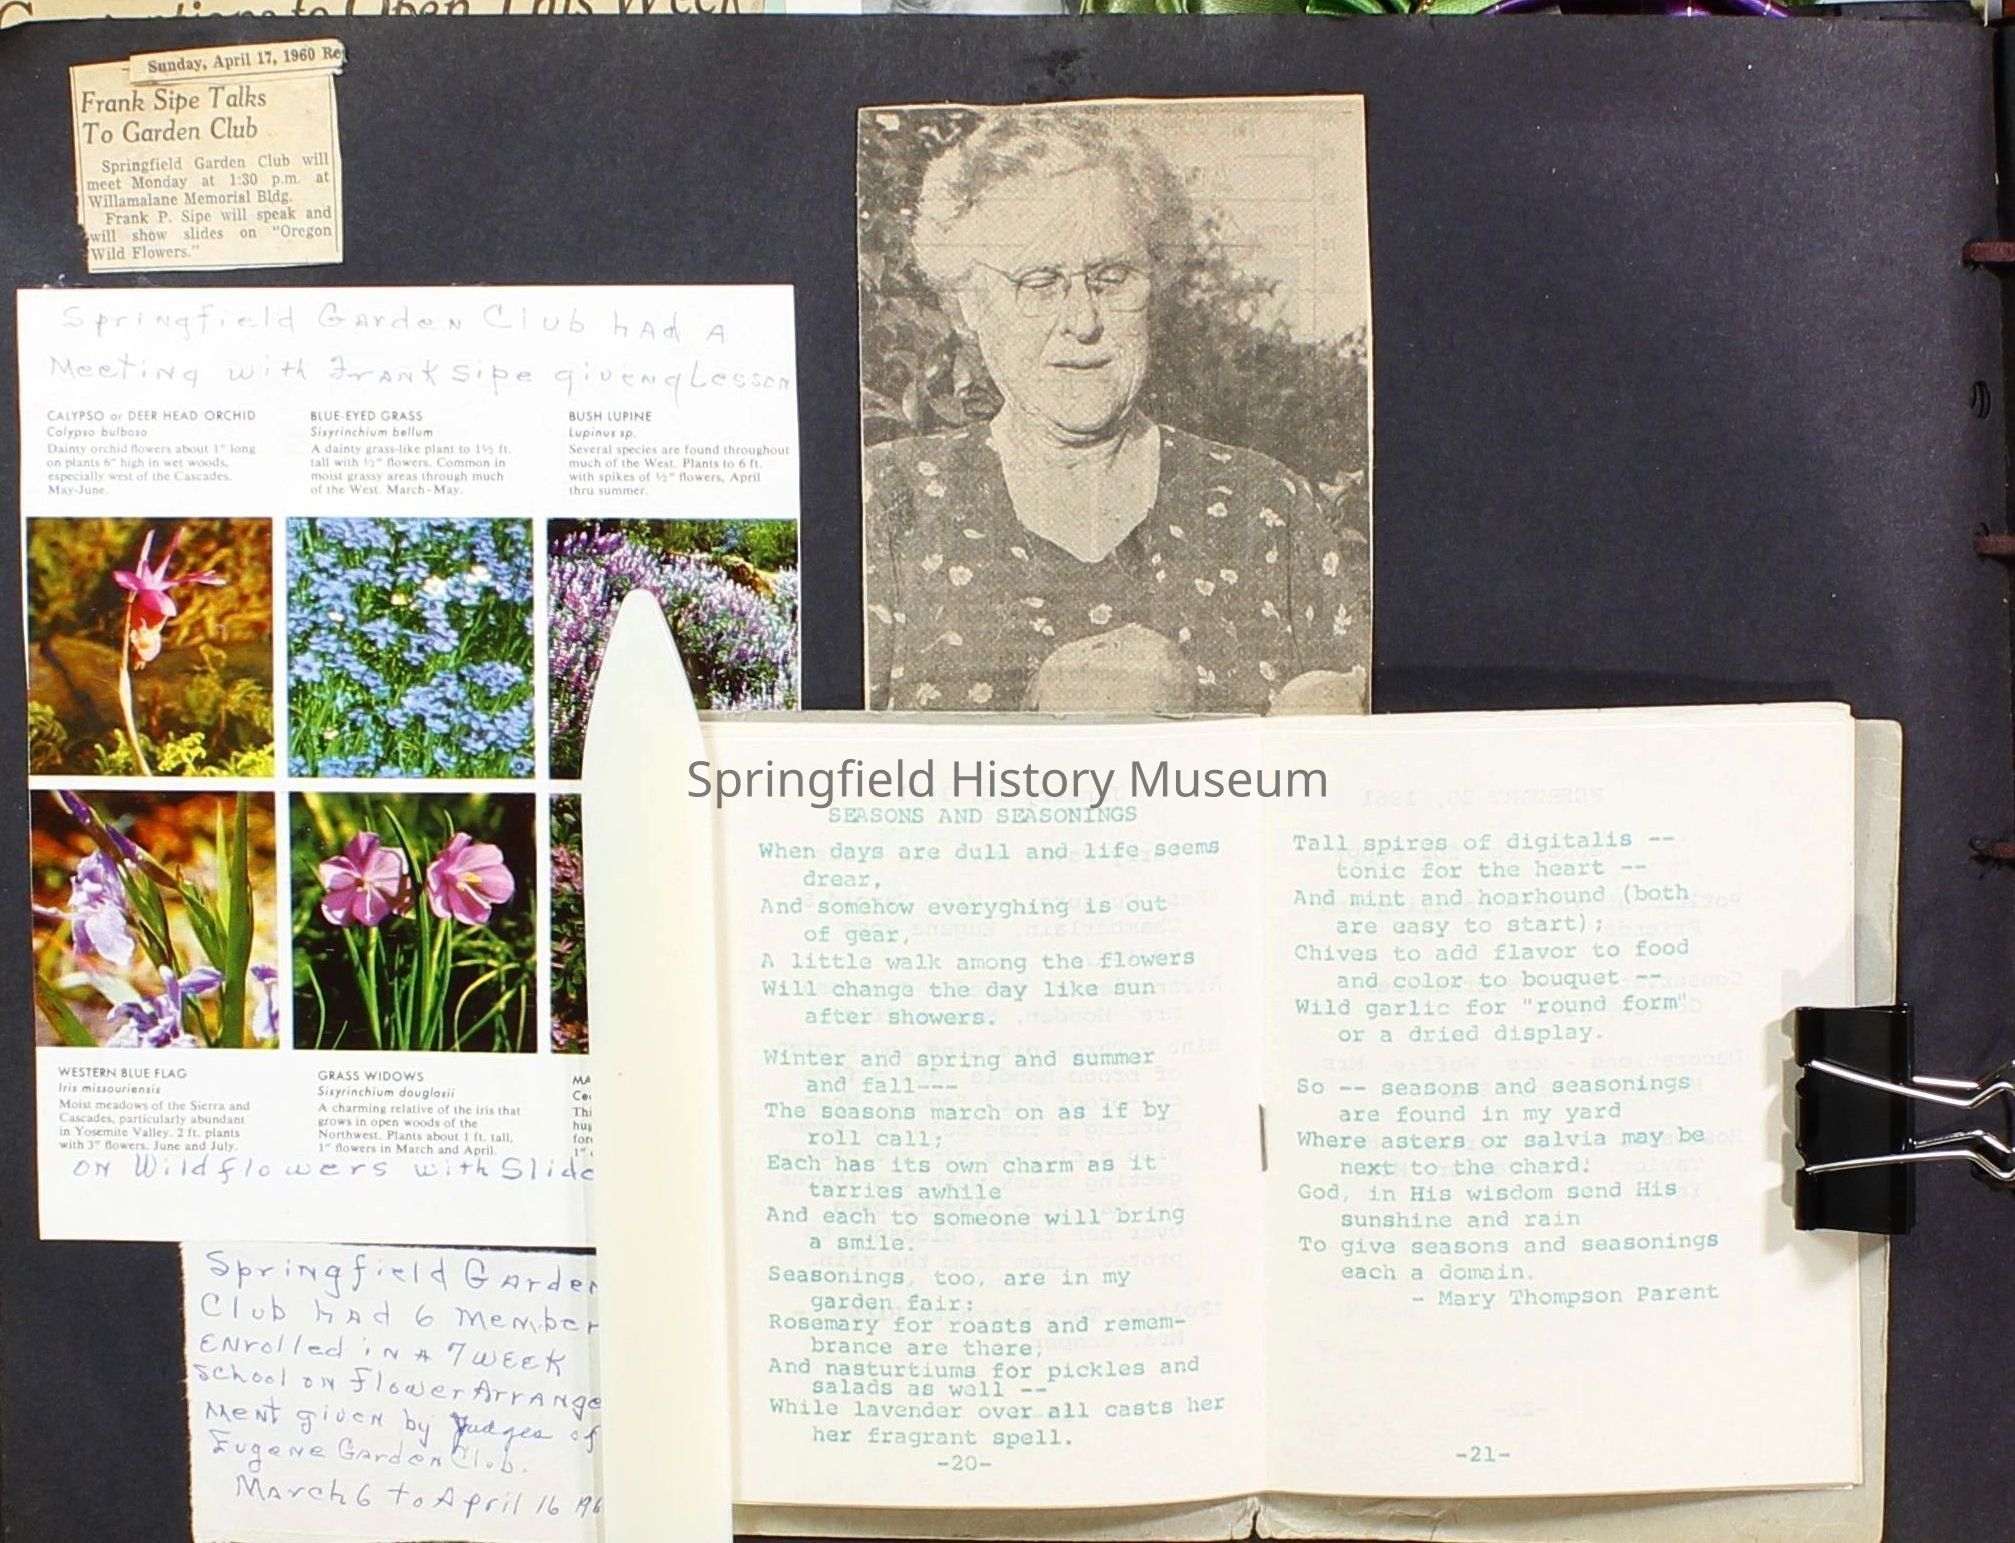 Sunday, April 17, 1960
Frank Sipe Talks
To Garden Club
Springfield Garden Club will
meet Monday at 1:30 p.m. at
Willamalane Memorial Bldg.
Frank P. Sipe will speak and
will show slides on "Oregon
Wild Flowers."
Springfield Garden Club had A
Meeting with Frank Sipe givenq Lesson
CALYPSO or DEER HEAD ORCHID
Calypso bulbosa
Dainty orchid flowers about 1" long
on plants 6" high in wet woods,
especially west of the Cascades.
May-June.
BLUE-EYED GRASS
Sisyrinchium bellum
A dainty grass-like plant to 1½ ft.
tall with ½" flowers. Common in
moist grassy areas through much
of the West. March-May.
BUSH LUPINE
Lupinus sp.
Several species are found throughout
much of the West. Plants to 6 ft.
with spikes of ½" flowers, April
thru summer.
WESTERN BLUE FLAG
Iris missouriensis
Moist meadows of the Sierra and
Cascades, particularly abundant
in Yosemite Valley. 2 ft. plants
with 3" flowers. June and July.
GRASS WIDOWS
Sisyrinchium douglasii
A charming relative of the iris that
grows in open woods of the
Northwest. Plants about 1 ft. tall,
1" flowers in March and April.
on Wildflowers with Slide
Springfield Garden
Club had 6 Member
Enrolled in A 7 WEEK
School on Flower Arrange
Ment given by Judges of
Eugene Garden Club.
March 6 to April 16 196
Springfield History Museum
SEASONS AND SEASONINGS
When days are dull and life seems
drear,
And somehow everyghing is out
of gear,
A little walk among the flowers
Will change the day like sun
after showers.
Winter and spring and summer
and fall---
The seasons march on as if by
roll call;
Each has its own charm as it
tarries awhile
And each to someone will bring
a smile.
Seasonings, too, are in my
garden fair:
Rosemary for roasts and remem-
brance are there;
And nasturtiums for pickles and
salads as well --
While lavender over all casts her
her fragrant spell.
-20-
Tall spires of digitalis --
tonic for the heart --
And mint and hoarhound (both
are easy to start);
Chives to add flavor to food
and color to bouquet --
Wild garlic for "round form"
or a dried display.
So -- seasons and seasonings
are found in my yard
Where asters or salvia may be
next to the chard!
God, in His wisdom send His
sunshine and rain
To give seasons and seasonings
each a domain.
- Mary Thompson Parent
-21-